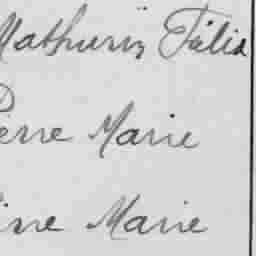 Mathurin Félix
Pierre Marie
Marie